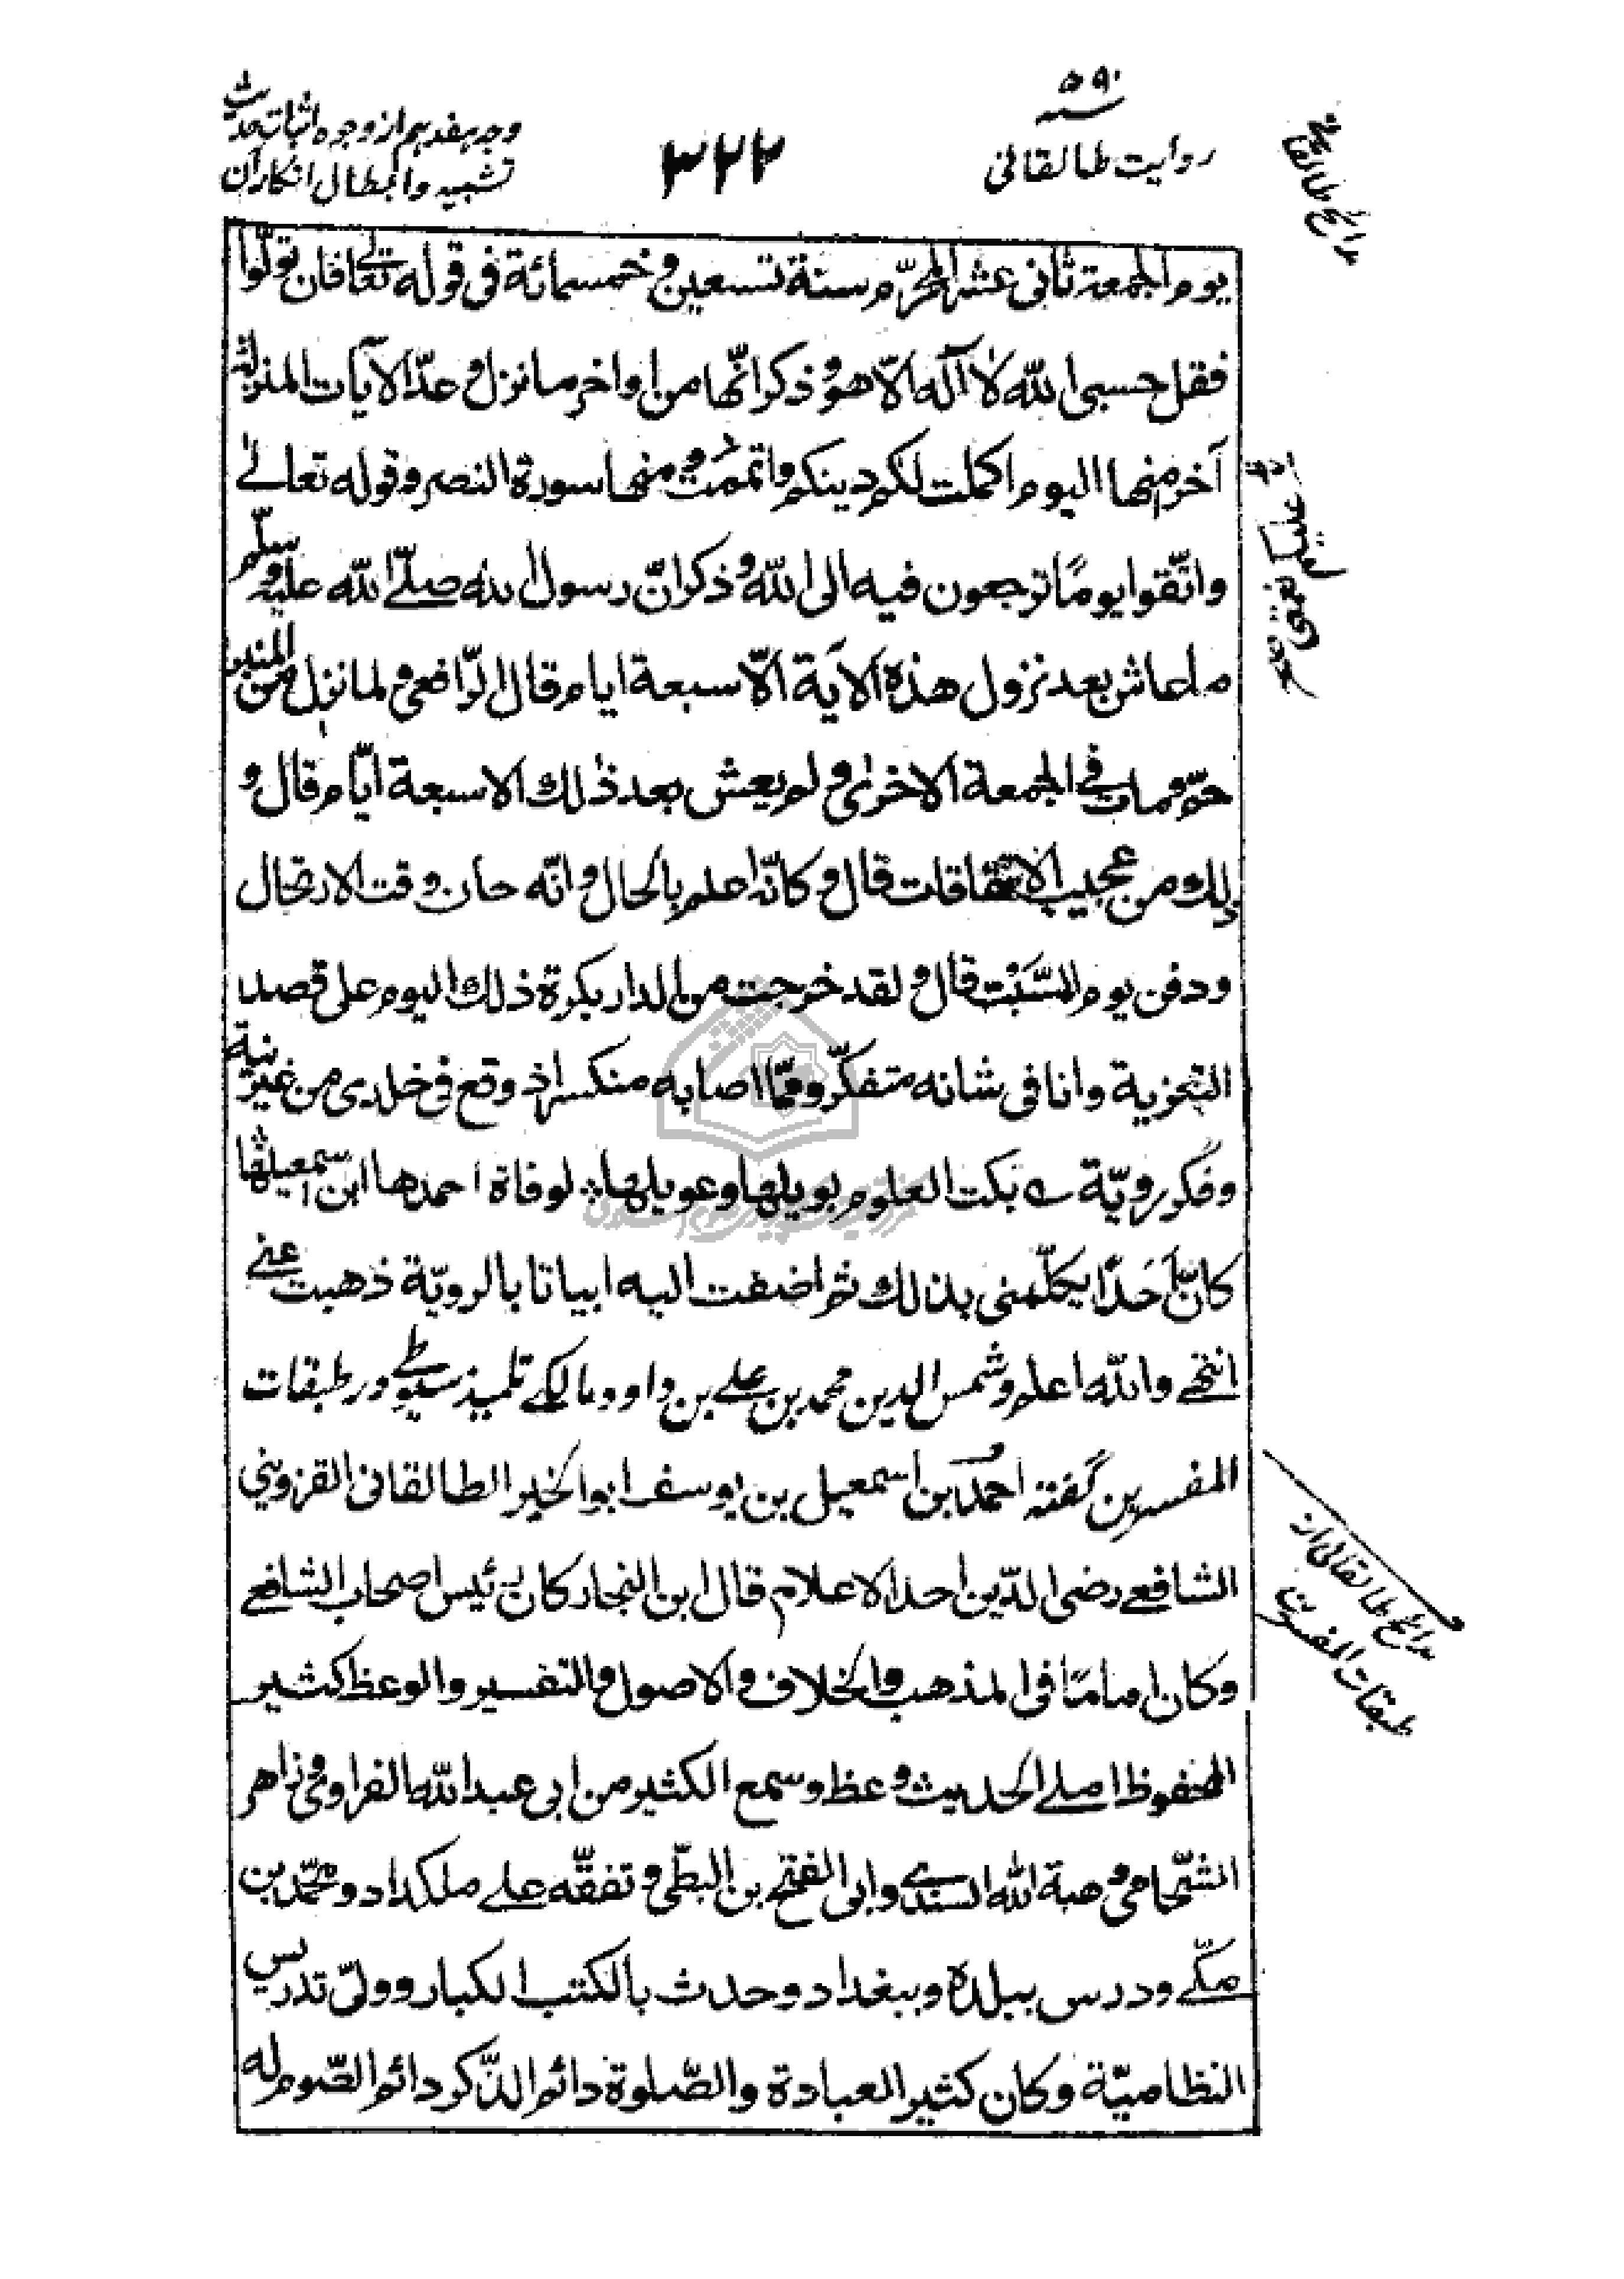 ۵۹۰
روایت طالقانی
۳۲۲
وجه هفدهم از وجوه اثبات حدیث
تشبیه و ابطال انکار آن
مدائح طالقانی
یوم الجمعة ثانی عشر المحرّم سنة تسعین و خمسمائة فی قوله تعالی فان تولّوا
فقل حسبی الله لا آله الّا هو و ذکر انّها من اواخر ما نزل و عدّ الآیات المنزلة
آخرا منها الیوم اکملت لکم دینکم و اتممت و منها سورة النصر و قوله تعالی
علیکم نعمتی
و اتّقوا یومًا ترجعون فیه الی الله و ذکر انّ رسول الله صلّی الله علیه و سلّم
ما عاش بعد نزول هذه الآیة الّا سبعة ایام قال الرّافعی و لما نزل من المنبر
حمّ و مات فی الجمعة الاخری و لم یعش بعد ذلك الا سبعة ایّام قال و
ذلك من عجیب الاتفاقات قال و کانّه اعلم بالحال و انّه حان وقت الارتحال
و دفن یوم السّبْت قال و لقد خرجت من الدار بکرة ذلك الیوم علی قصد
التعزیة و انا فی شانه متفکّر و ممّا اصابه منکسر اذ وقع فی خلدی من غیر نیة
و فکر رویّة بکت العلوم بویلها و عویلها لوفاة احمدها ابن اسمعیلها
کانّ اَحَدًا یکلّمنی بذلك ثم اضفت الیه ابیاتا بالرویّة ذهبت عنّی
انتهی و الله اعلم و شمس الدین محمد بن علی بن داود مالکی تلمیذ سیوطی در طبقات
المفسرین گفته احمد بن اسمعیل بن یوسف ابو الخیر الطالقانی القزوینی
مدائح طالقانی از
طبقات المفسرین
الشافعی رضی الدّین احد الاعلام قال ابن النجار کان رئیس اصحاب الشافعی
و کان امامًا فی المذهب و الخلاف و الاصول و التفسیر و الوعظ کثیر
المحفوظ املی الحدیث و وعظ و سمع الکثیر من ابی عبد الله الفراوی و زاهر
الشّحامی و هبة الله السندی و ابی الفتح بن البطّی و تفقّه علی ملکداد و محمّد بن
مکّی و درس ببلده و ببغداد و حدث بالکتب الکبار و ولیّ تدریس
النظامیّة و کان کثیر العبادة و الصّلوة دائم الذّکر دائم الصّوم له